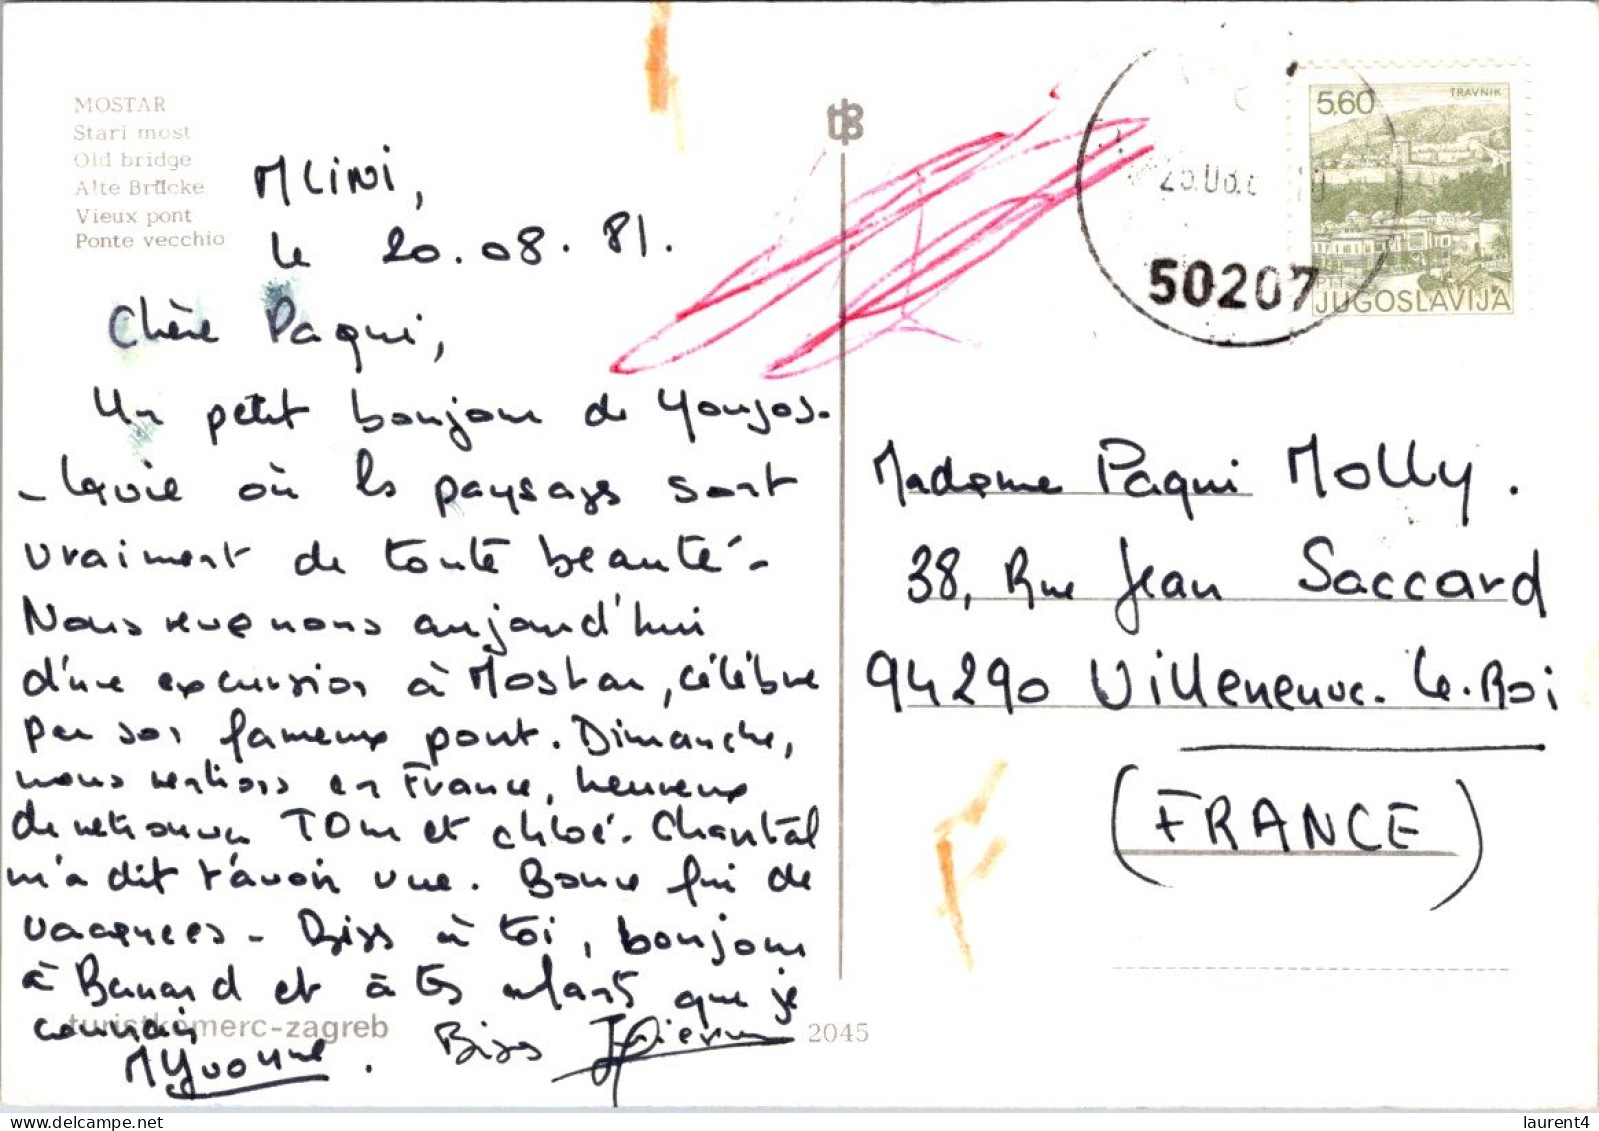 MOSTAR
Stari most
Old bridge
Alte Brücke
Vieux pont
Ponte vecchio
MLINI,
le 20.08.81.
Chère Paqui,
Un petit bonjour de Yougos-
-lavie où les paysages sont
vraiment de toute beauté.
Nous revenons aujourd'hui
d'une excursion à Mostar, célèbre
par son fameux pont. Dimanche,
nous rentrons en France, heureux
de retrouver Tom et Chloé. Chantal
m'a dit t'avoir vue. Bonne fin de
vacances - Bises à toi, bonjour
à Bernard et à tes enfants que je
connais
MYvonne. Bises JPierre
turistkomerc-zagreb
2045
50207
5,60
TRAVNIK
PTT
JUGOSLAVIJA
Madame Paqui Molly.
38, Rue Jean Saccard
94290 Villeneuve-Le-Roi
(FRANCE)
www.delcampe.net
laurent4